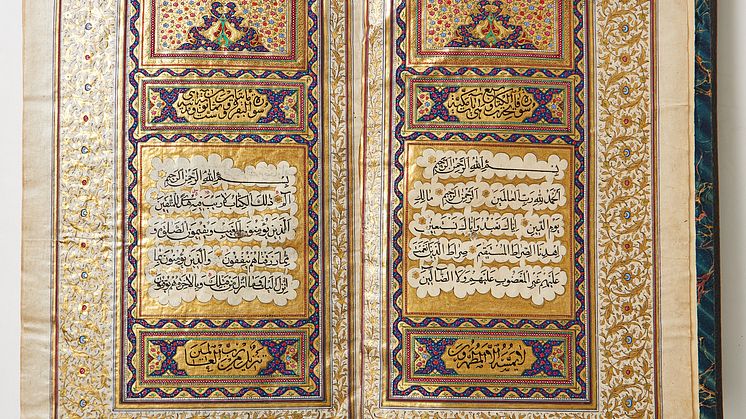 بسم الله الرحمن الرحيم
الحمد لله رب العالمين الرحمن الرحيم مالك
يوم الدين اياك نعبد واياك نستعين
اهدنا الصراط المستقيم صراط الذين انعمت
عليهم غير المغضوب عليهم ولا الضالين
لا يمسه الا المطهرون
سورة البقرة
بسم الله الرحمن الرحيم
الم ذلك الكتاب لا ريب فيه هدى للمتقين
الذين يؤمنون بالغيب ويقيمون الصلوة و
مما رزقناهم ينفقون والذين يؤمنون بما
انزل اليك وما انزل من قبلك وبالاخرة هم يوقنون
تنزيل من رب العالمين